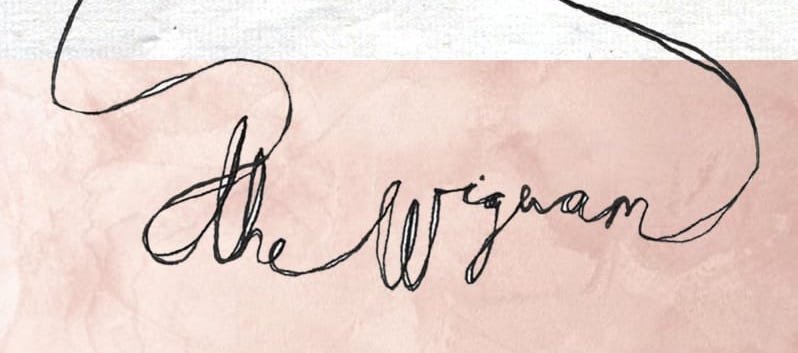 the Wigwam